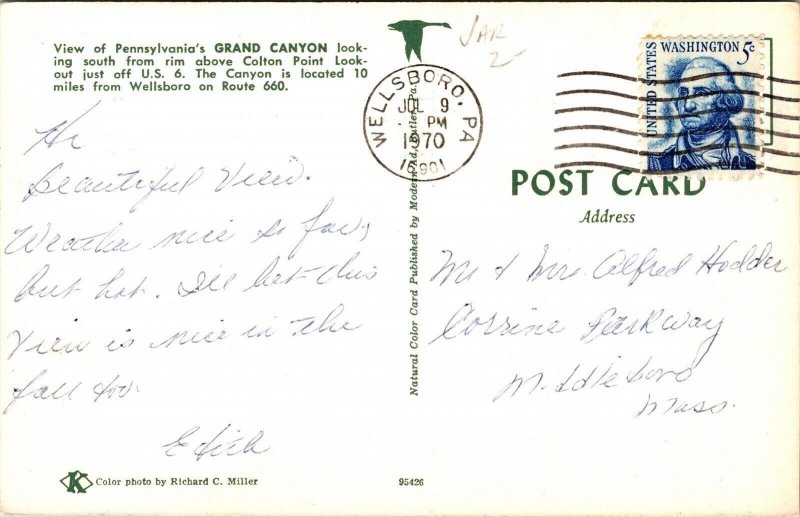 View of Pennsylvania's GRAND CANYON look-
ing south from rim above Colton Point Look-
out just off U.S. 6. The Canyon is located 10
miles from Wellsboro on Route 660.
Hi
Beautiful View.
Weather nice so far,
but hot. I'll bet this
View is nice in the
fall too.
Edith
Color photo by Richard C. Miller
95426
Natural Color Card Published by Modern Ad, Butler, Pa.
WELLSBORO, PA
JUL 9
PM
1970
16901
UNITED STATES
WASHINGTON 5¢
POST CARD
Address
Mr & Mrs. Alfred Hodder
Corrine Parkway
Middleboro
Mass.
K